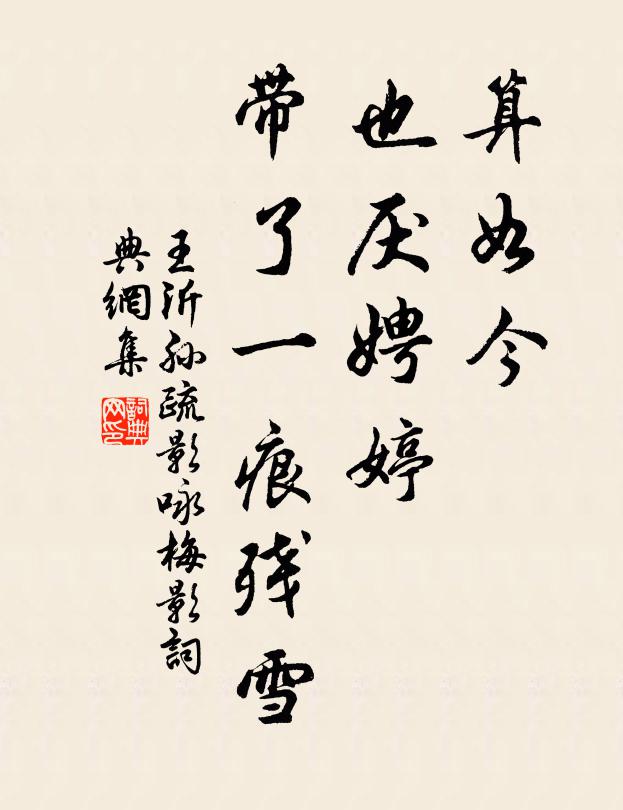 算如今
也厌娉婷
带了一痕残雪
王沂孙疏影咏梅影詞
典網集
詞典
网印